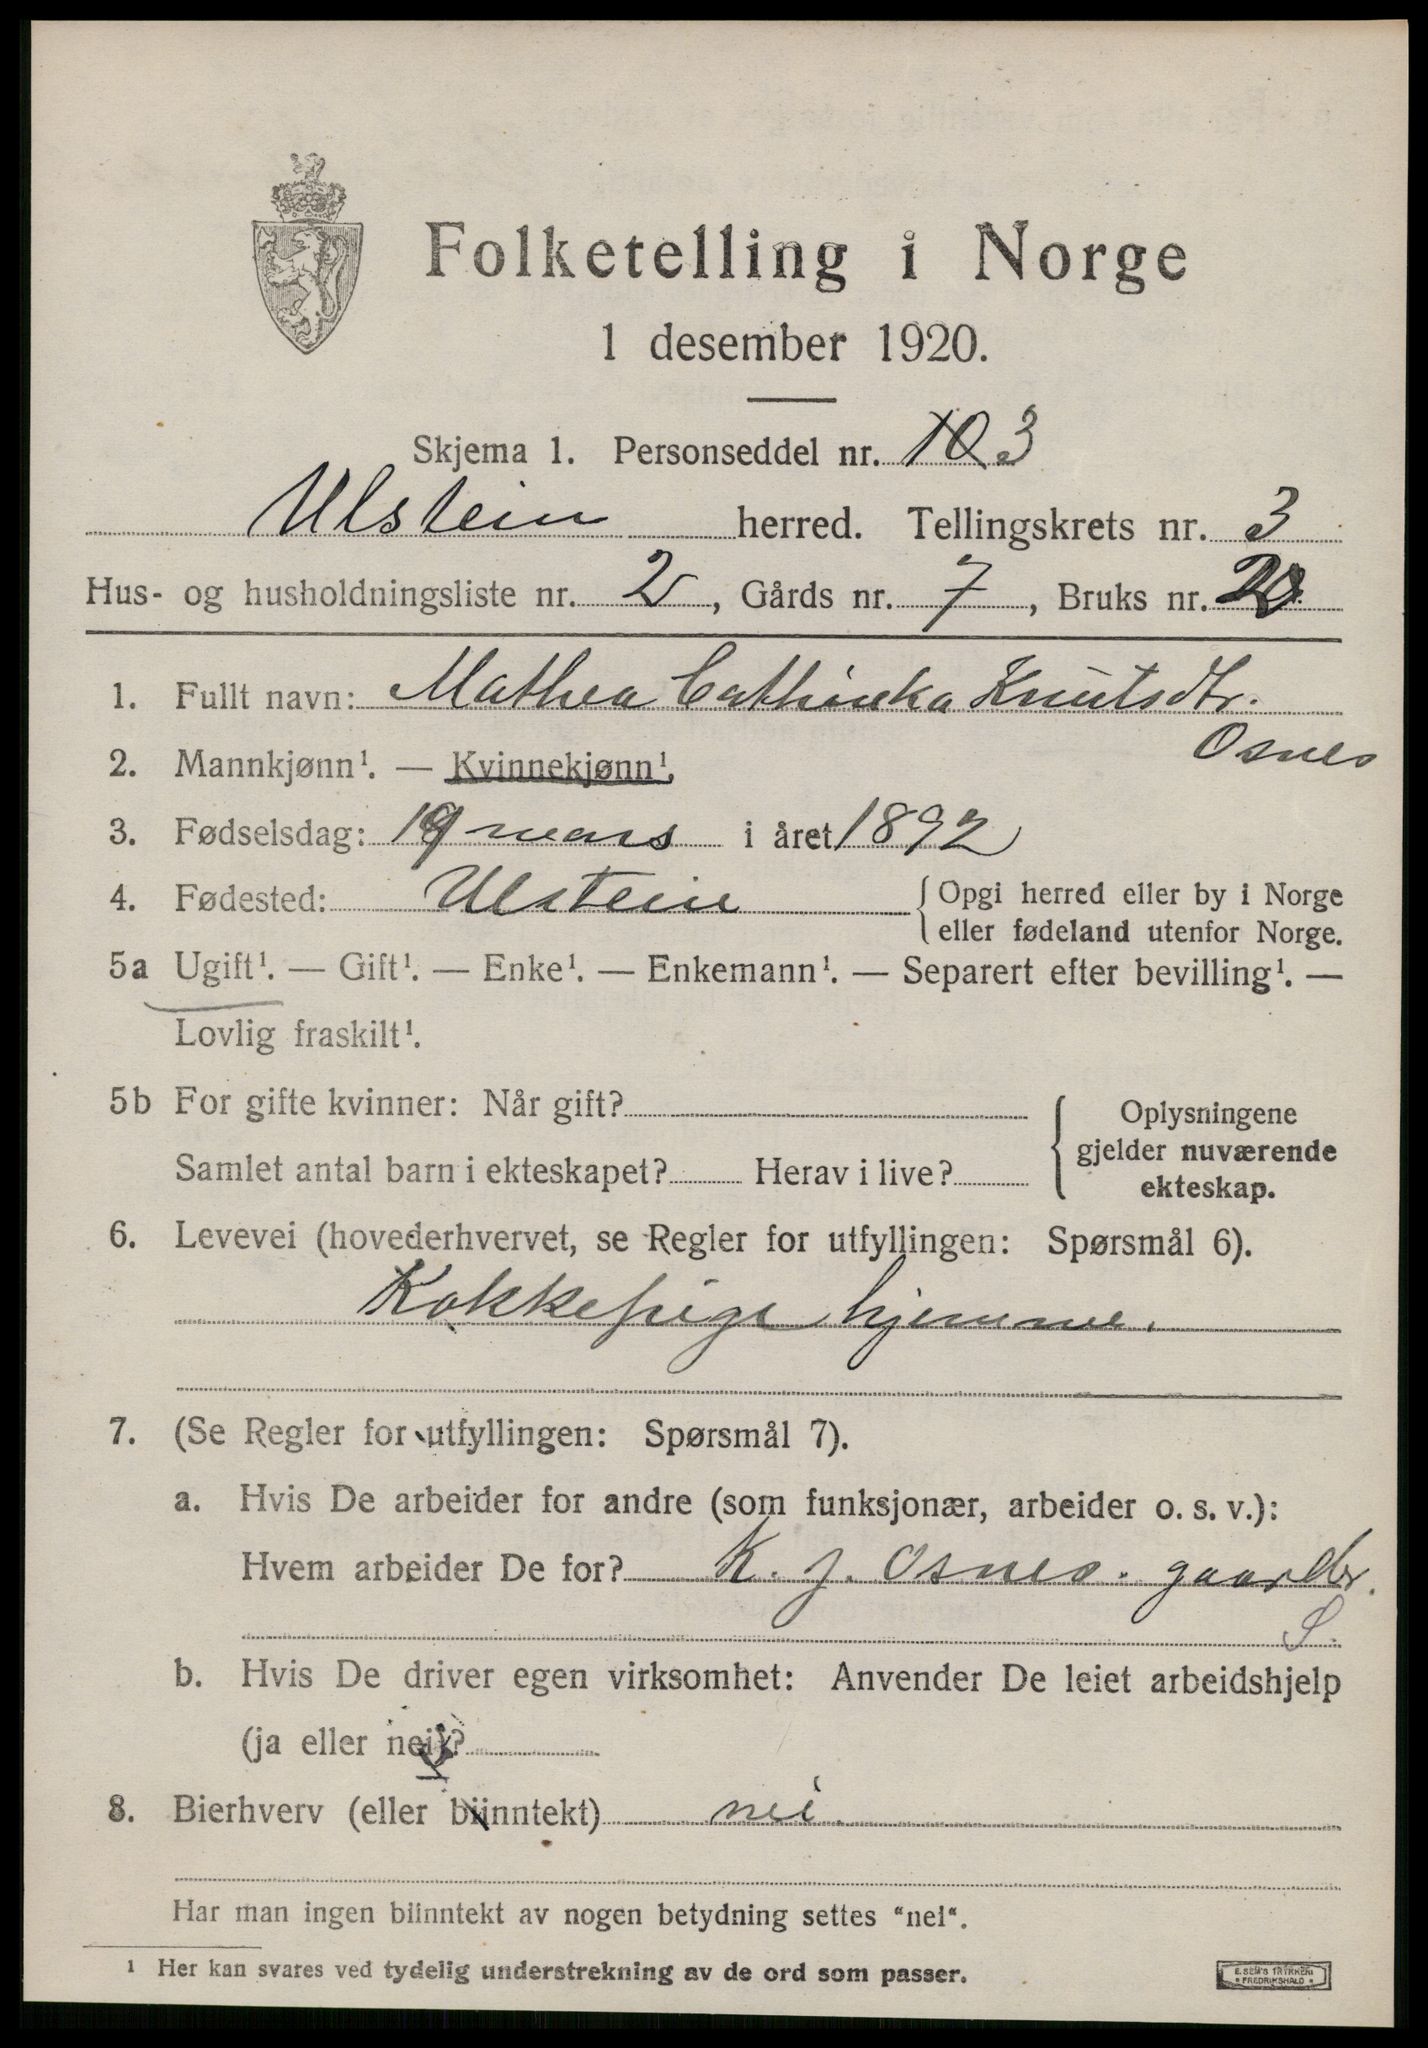 Folketelling i Norge
1 desember 1920.
Skjema 1. Personseddel nr. 10 3
Ulstein herred. Tellingskrets nr. 3
Hus- og husholdningsliste nr. 2, Gårds nr. 7, Bruks nr.
1. Fullt navn: Mathea Cathinka Knutsdtr.
Osnes
2. Mannkjønn¹. — Kvinnekjønn¹.
3. Fødselsdag: 19 mars i året 1892
4. Fødested: Ulstein { Opgi herred eller by i Norge
eller fødeland utenfor Norge.
5a Ugift¹. — Gift¹. — Enke¹. — Enkemann¹. — Separert efter bevilling¹. —
Lovlig fraskilt¹.
5b For gifte kvinner: Når gift?
Samlet antal barn i ekteskapet? Herav i live?
{ Oplysningene
gjelder nuværende
ekteskap.
6. Levevei (hovederhvervet, se Regler for utfyllingen: Spørsmål 6).
Kokkepige hjemme.
7. (Se Regler for utfyllingen: Spørsmål 7).
a. Hvis De arbeider for andre (som funksjonær, arbeider o. s. v.):
Hvem arbeider De for? K. J. Osnes. gaardbr.
S.
b. Hvis De driver egen virksomhet: Anvender De leiet arbeidshjelp
(ja eller nei)?
8. Bierhverv (eller biinntekt) nei.
Har man ingen biinntekt av nogen betydning settes "nei".
¹ Her kan svares ved tydelig understrekning av de ord som passer.
E. SEM'S TRYKKERI
FREDRIKSHALD